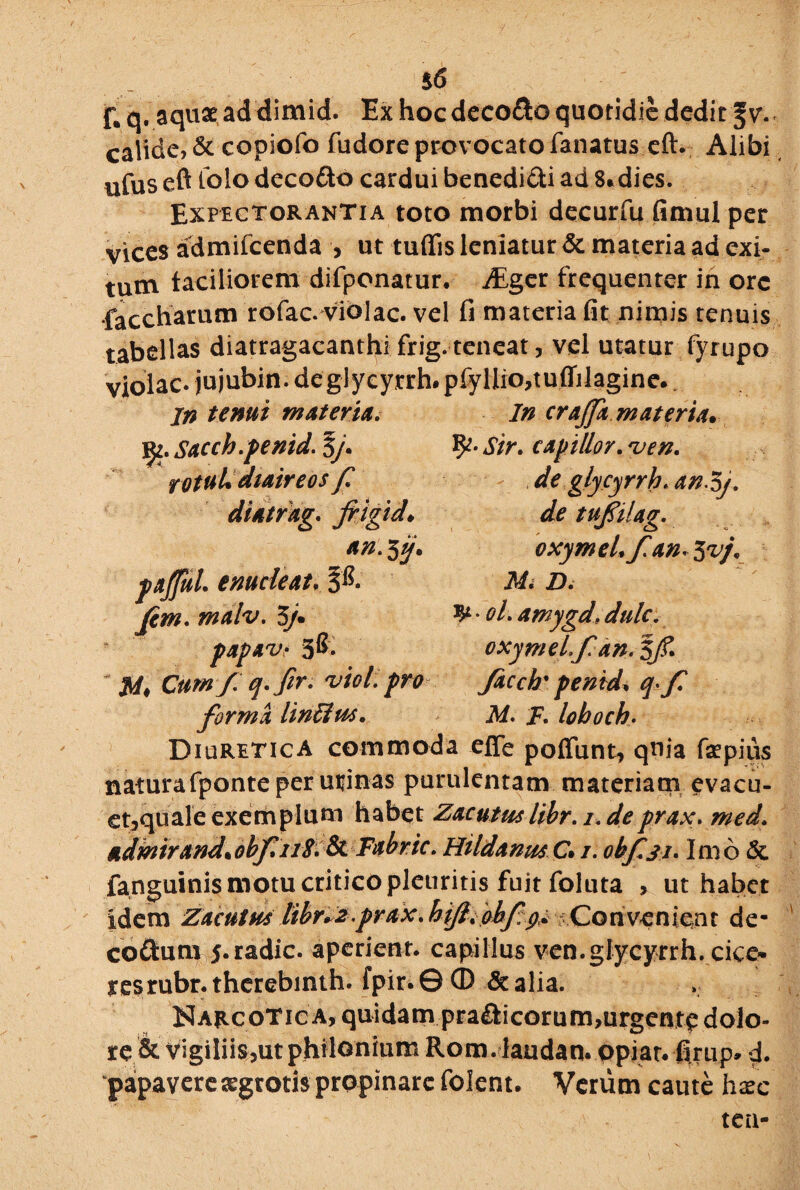 56
ſ. q. aquæ ad dimid. Ex hoc decocto quotidie dedit ℥v.
calide, & copioſo ſudore provocato ſanatus eſt. Alibi
uſus eſt ſolo decocto cardui benedicti ad 8. dies.
EXPECTORANTIA toto morbi decurſu ſimul per
vices admiſcenda, ut tuſſis leniatur & materia ad exi-
tum faciliorem diſponatur. Æger frequenter in ore
ſaccharum roſac. violac. vel ſi materia ſit nimis tenuis
tabellas diatragacanthi frig. teneat, vel utatur ſyrupo
violac. jujubin. de glycyrrh. pſyllio, tuſſilagine.
In tenui materia.
℞. Sacch. penid. ℥j.
rotul. diaireos ſ.
diatrag. frigid.
an. ʒij.
paſſul. enucleat. ℥ß.
ſem. malv. ʒj.
papav. ʒß.
M. Cum ſ. q. ſir. viol. pro
forma linctus.
In craſſa materia.
℞. Sir. capillor. ven.
de glycyrrh. an. ʒj.
de tuſſilag.
oxymel. ſ. an. ʒvj.
M. D.
℞. ol. amygd. dulc.
oxymel. ſ. an. ℥ß.
ſacch. penid. q. ſ.
M. F. lohoch.
DIURETICA commoda eſſe poſſunt, quia ſæpius
natura ſponte per urinas purulentam materiam evacu-
et, quale exemplum habet Zacutus libr. 1. de prax. med.
admirand. obſ. 118. & Fabric. Hildanus C. 1. obſ. 31. Imò &
ſanguinis motu critico pleuritis fuit ſoluta, ut habet
idem Zacutus libr. 2. prax. hiſt. obſ. 9. Convenient de-
coctum 5. radic. aperient. capillus ven. glycyrrh. cice-
res rubr. therebinth. ſpir. 🜔 🜕 & alia.
NARCOTICA, quidam practicorum, urgente dolo-
re & vigiliis, ut philonium Rom. laudan. opiat. ſirup. d.
papavere ægrotis propinare ſolent. Verùm cautè hæc
ten-